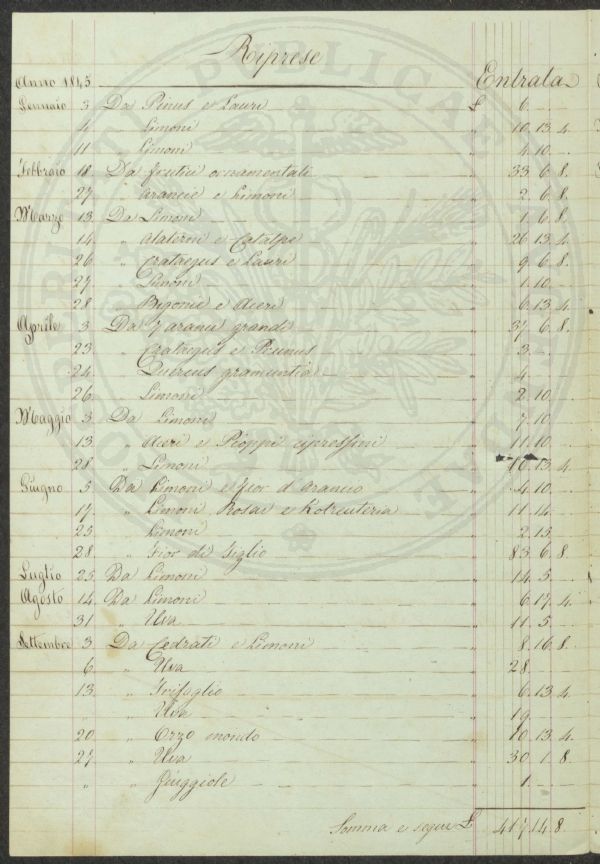 Riprese
Anno 1845 Entrata
Gennaio 3 Da Pinus e Lauri £ 6. -. -.
4 „ Limoni „ 10. 13. 4.
11 „ Limoni „ 4. 10. -.
Febbraio 18 Da frutici ornamentali „ 33. 6. 8.
27 „ Arancie e Limoni „ 2. 6. 8.
Marzo 13 Da Limoni „ 1. 6. 8.
14 „ Alaterni e Catalpe „ 26. 13. 4.
26 „ Crataegus e Lauri „ 9. 6. 8.
27 „ Limoni „ 1. 10. -.
28 „ Bigonie e Aceri „ 6. 13. 4.
Aprile 3 Da 7 aranci grandi „ 37. 6. 8.
23 „ Crataegus e Prunus „ 3. -. -.
24 „ Quercus gramuntia „ 4. -. -.
26 „ Limoni „ 2. 10. -.
Maggio 3 Da Limoni „ 7. 10. -.
13 „ Aceri e Pioppi cipressini „ 11. 10. -.
28 „ Limoni „ 10. 13. 4.
Giugno 5 Da Limoni e fior d'arancio „ 4. 10. -.
17 „ Limoni, Rosai e Kolreuteria „ 11. 14. -.
23 Limoni „ 2. 13. -.
28 „ Fior di Tiglio „ 83. 6. 8.
Luglio 25 Da Limoni „ 14. 5. -.
Agosto 14 Da Limoni „ 6. 17. 4.
31 „ Uva „ 11. 5. -.
Settembre 3 Da Cedrati e Limoni „ 8. 16. 8.
6 „ Uva „ 28. -. -.
13 „ Trifoglio „ 6. 13. 4.
„ „ Uva „ 19. -. -.
20 „ Orzo mondo „ 10. 13. 4.
27 „ Uva „ 30. 1. 8.
„ „ Giuggiole „ 1. -. -.
Somma e segue £ 417. 14. 8.